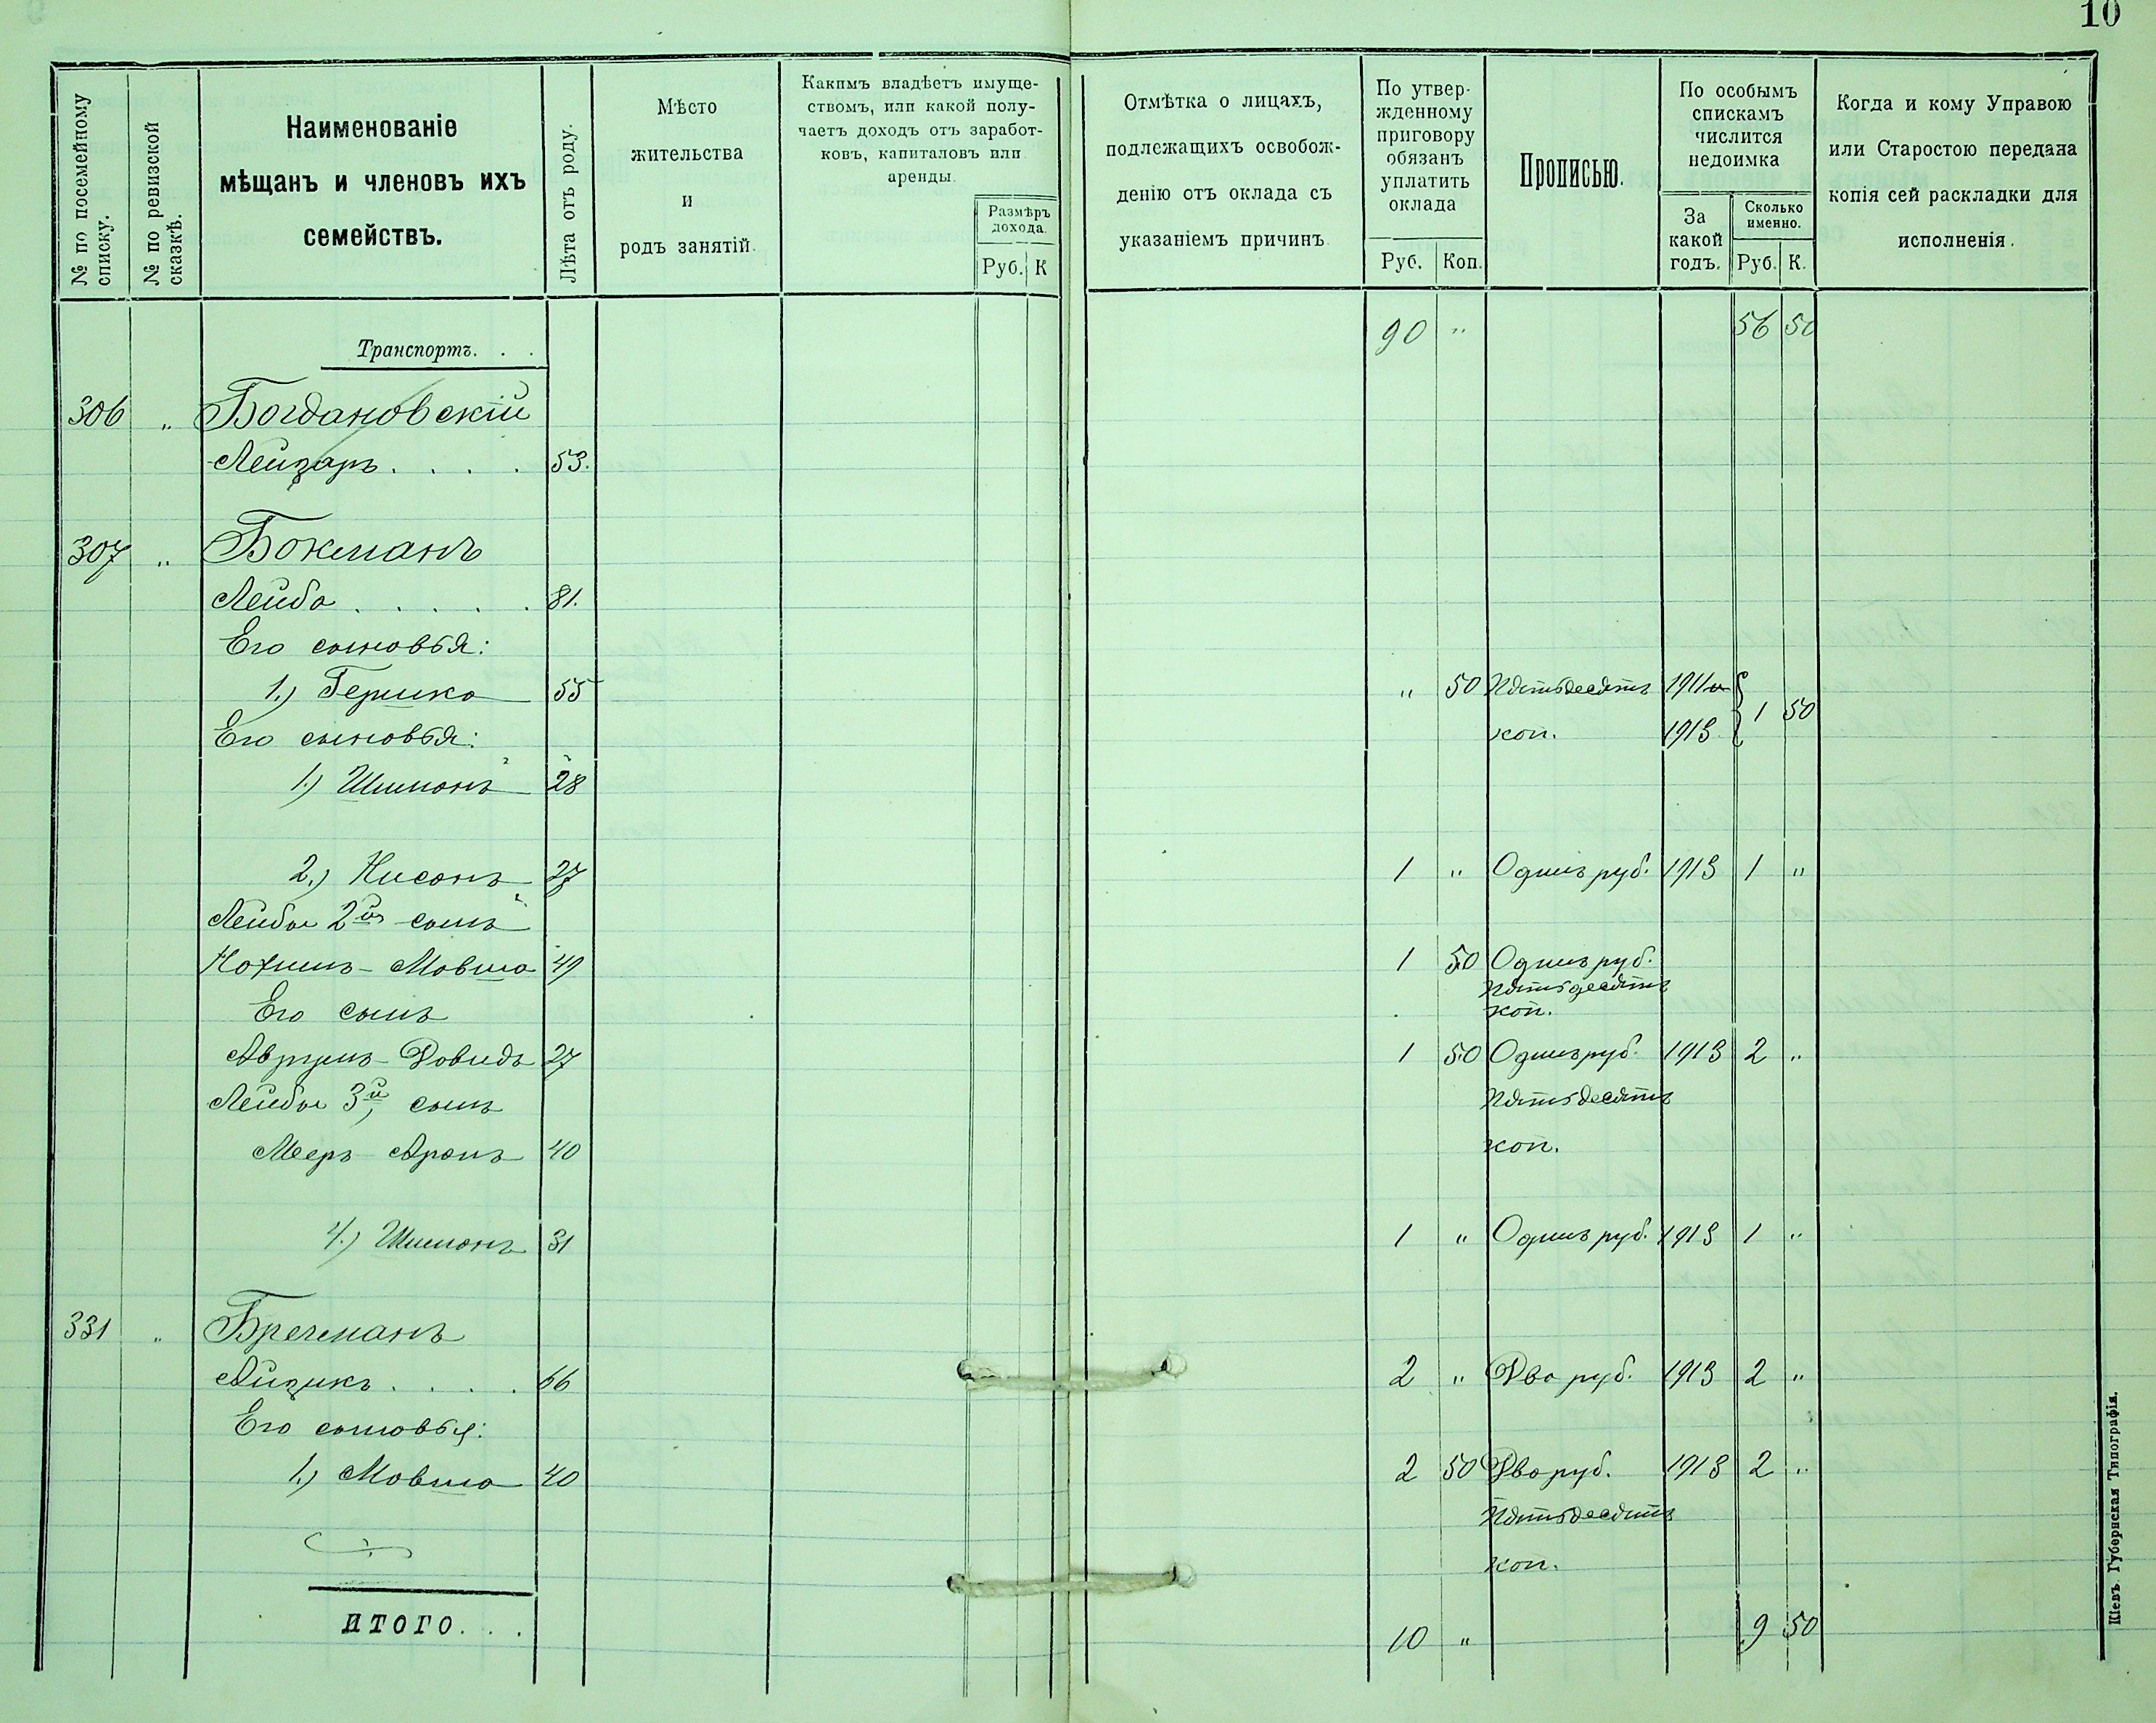 10
№ по посемейному списку.
№ по ревизской сказкѣ.
Наименованіе
мѣщанъ и членовъ ихъ
семействъ.
Лѣта отъ роду.
Мѣсто
жительства
и
родъ занятій.
Какимъ владѣетъ имуще-
ствомъ, или какой полу-
чаетъ доходъ отъ заработ-
ковъ, капиталовъ или
аренды.
Размѣръ
дохода.
Руб. К
Отмѣтка о лицахъ,
подлежащихъ освобож-
денію отъ оклада съ
указаніемъ причинъ.
По утвер-
жденному
приговору
обязанъ
уплатить
оклада
Руб. Коп.
Прописью.
По особымъ
спискамъ
числится
недоимка
За
какой
годъ.
Сколько
именно.
Руб. К.
Когда и кому Управою
или Старостою передана
копія сей раскладки для
исполненія.
Транспортъ. . . 90 " 56 50
306 " Богдановскій
Лейзаръ . . . . 53.
307 " Бокманъ
Лейба . . . . . 81.
Его сыновья:
1.) Гершко 55 " 50 Пятьдесятъ 1911 и
Его сыновья: коп. 1913 1 50
1.) Шимонъ 28
2.) Нисонъ 27 1 " Одинъ руб. 1913 1 "
Лейбы 2й сынъ
Нохимъ-Мовша 49 1 50 Одинъ руб.
Пятьдесятъ
Его сынъ коп.
Аврумъ-Довидъ 27 1 50 Одинъ руб. 1913 2 "
Лейбы 3й сынъ Пятьдесятъ
Мееръ Аронъ 40 коп.
4.) Шимонъ 31 1 " Одинъ руб. 1913 1 "
331 " Бречманъ
Айзикъ . . . . 66 2 " Два руб. 1913 2 "
Его сыновья:
1.) Мовша 40 2 50 Два руб. 1913 2 "
Пятьдесятъ
коп.
ИТОГО. . . 10 " 9 50
Кіевъ. Губернская Типографія.